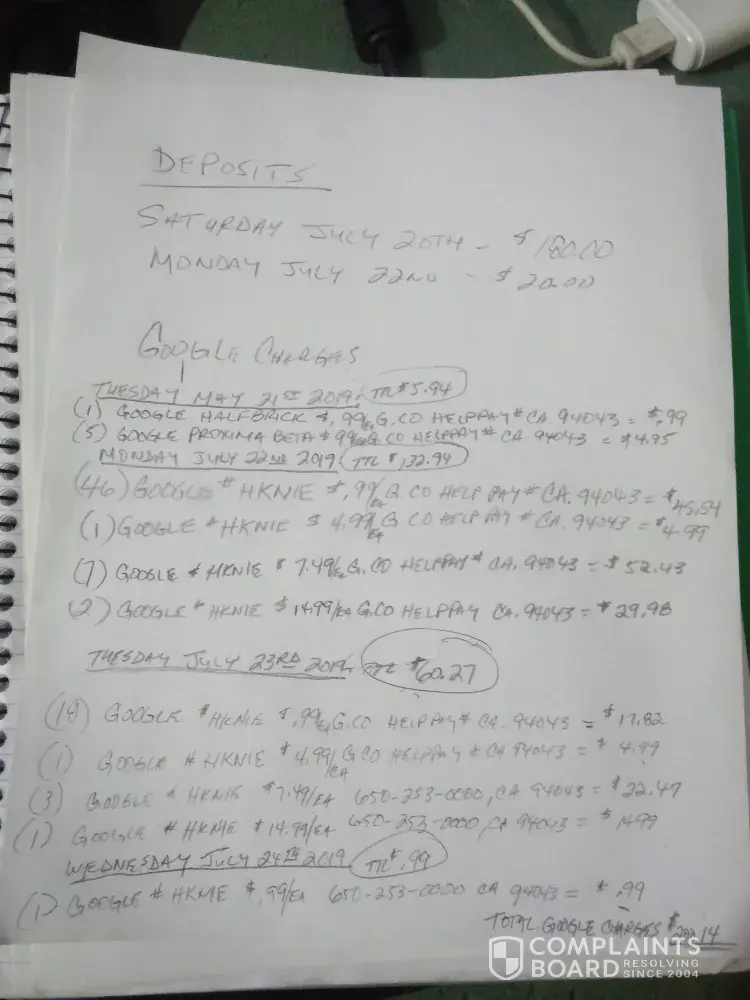 DEPOSITS
SATURDAY JULY 20TH - $180.00
MONDAY JULY 22ND - $20.00
GOOGLE CHARGES
TUESDAY MAY 21ST 2019. TTL $5.94
(1) GOOGLE HALFBRICK $,99/EA G.CO HELPPAY# CA. 94043 = $.99
(5) GOOGLE PROXIMA BETA $.99/EA G.CO HELPPAY# CA 94043 = $4.95
MONDAY JULY 22ND 2019. TTL $132.94
(46) GOOGLE #HKNIE $,99/EA G.CO HELP PAY# CA. 94043 = $45.54
(1) GOOGLE #HKNIE $4.99/EA G CO HELP PAY # CA. 94043 = $4.99
(7) GOOGLE # HKNIE $7.49/EA G.CO HELPPAY# CA. 94043 = $52.43
(2) GOOGLE # HKNIE $14.99/EA G.CO HELPPAY CA. 94043 = $29.98
TUESDAY JULY 23RD 2019. TTL $60.27
(18) GOOGLE #HKNIE $,99/EA G.CO HELPPAY# CA. 94043 = $17.82
(1) GOOGLE # HKNIE $4.99/EA G.CO HELPPAY # CA 94043 = $4.99
(3) GOOGLE # HKNIE $7.49/EA 650-253-0000, CA 94043 = $22.47
(1) GOOGLE # HKNIE $14.99/EA 650-253-0000, CA 94043 = $14.99
WEDNESDAY JULY 24TH 2019 TTL $.99
(1) GOOGLE # HKNIE $,99/EA 650-253-0000 CA 94043 = $.99
TOTAL GOOGLE CHARGES
COMPLAINTS
BOARD RESOLVING
SINCE 2004